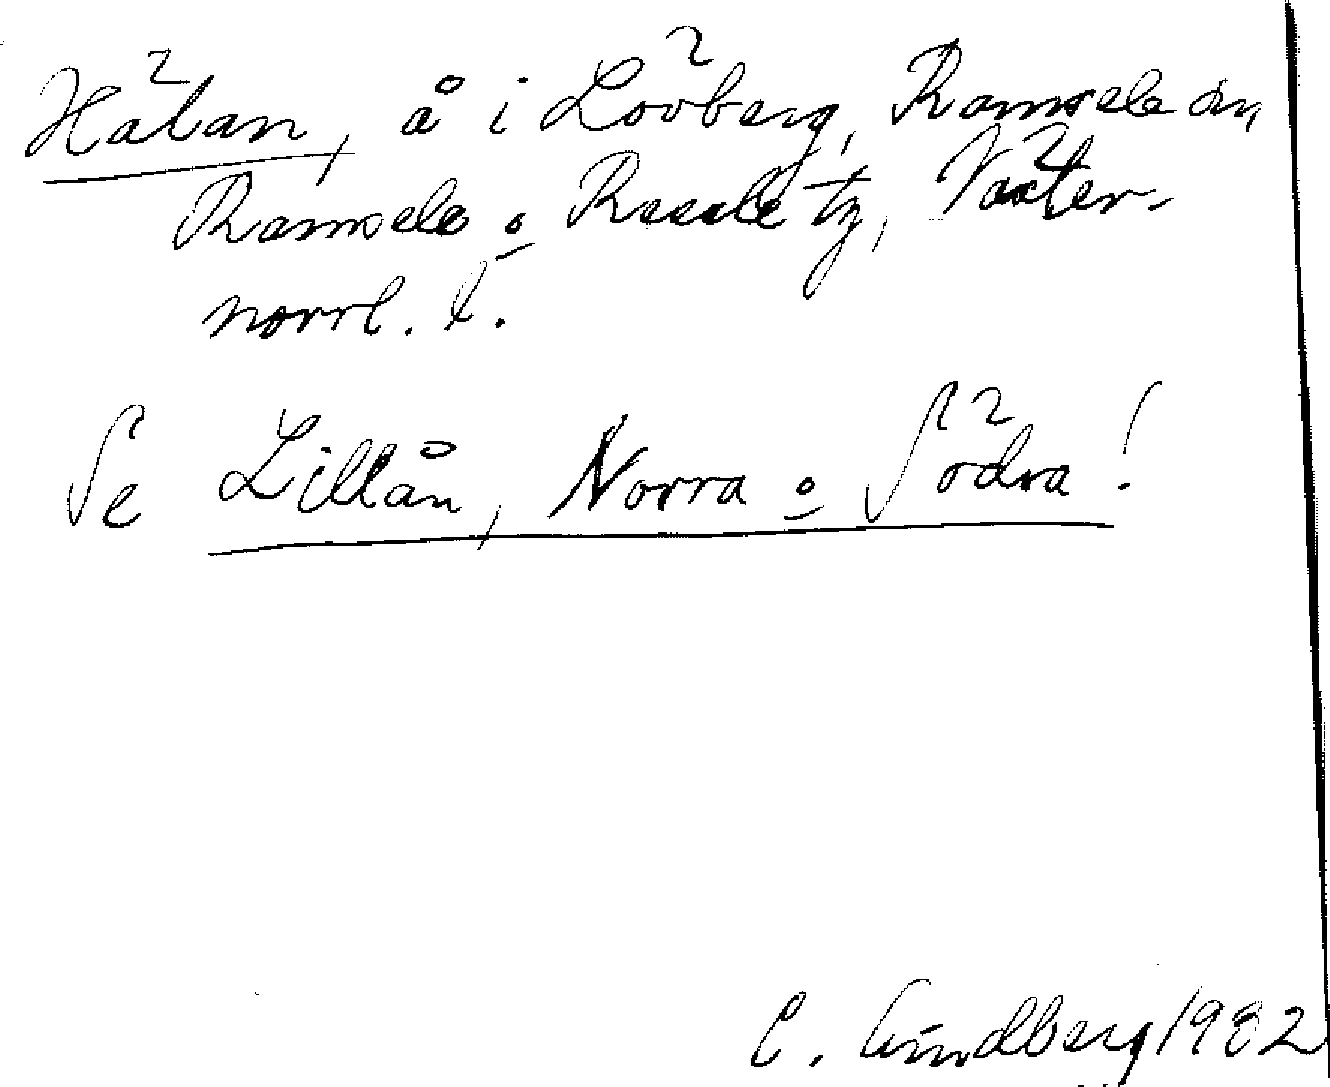 Hätan, å i Lövberg, Ramsele sn,
Ramsele o Resele tg, Väster-
norrl. l.
Se Lillån, Norra o Södra!
C. Lindberg 1982